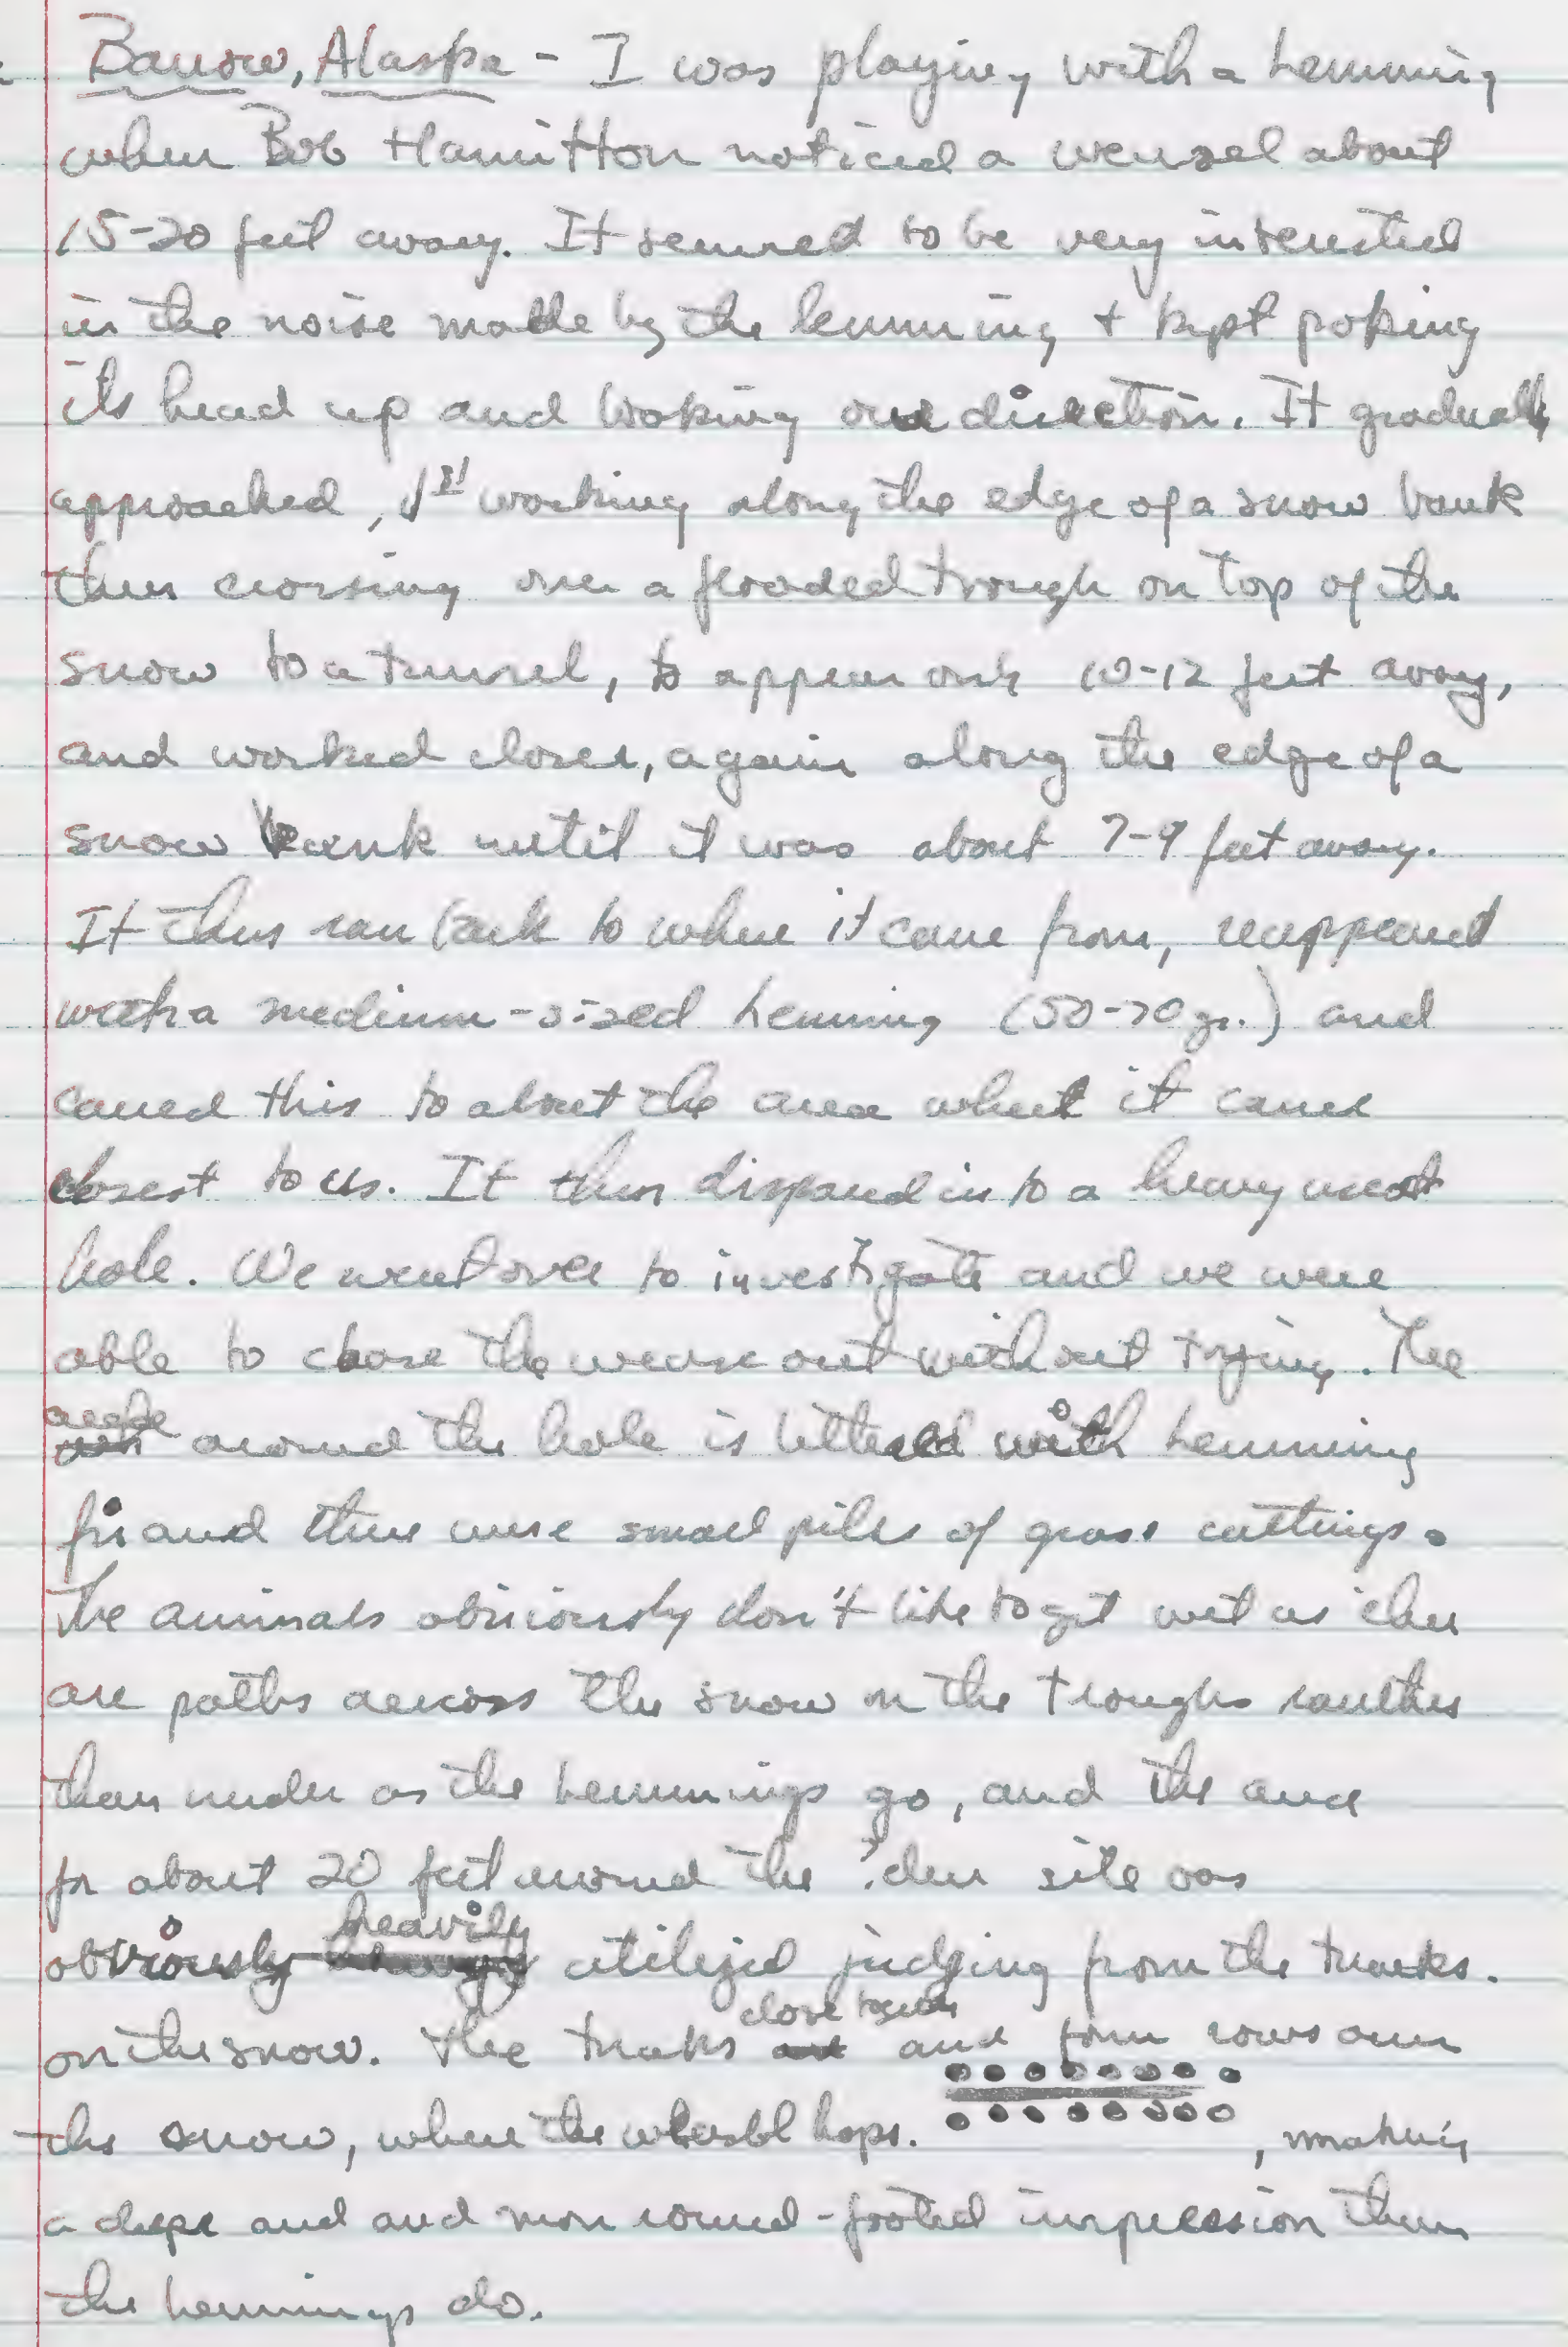 Barrow, Alaska - I was playing with a lemming
when Bob Hamilton noticed a weasel about
15-20 feet away. It seemed to be very interested
in the noise made by the lemming + kept poking
its head up and looking our direction. It gradually
approached, 1st working along the edge of a snow bank
then crossing over a flooded trough on top of the
snow to a tunnel, to appear only 10-12 feet away,
and worked closer, again along the edge of a
snow bank until it was about 7-9 feet away.
It then ran back to where it came from, reappeared
with a medium-sized lemming (50-70 gr.) and
carried this to about the area where it came
closest to us. It then disappeared into a heavy used
hole. We went over to investigate and we were
able to chase the weasel out without trying. The
area around the hole is littered with lemming
fur and there were small piles of grass cuttings.
The animals obviously don't like to get wet as there
are paths across the snow on the troughs rauther
than under as the lemmings go, and the area
for about 20 feet around the ?den site was
obviously heavily utilized judging from the tracks.
on the snow. The tracks close together and form rows over
the snow, where the weasel hops. , making
a deeper and and more round-footed impression than
the lemmings do.